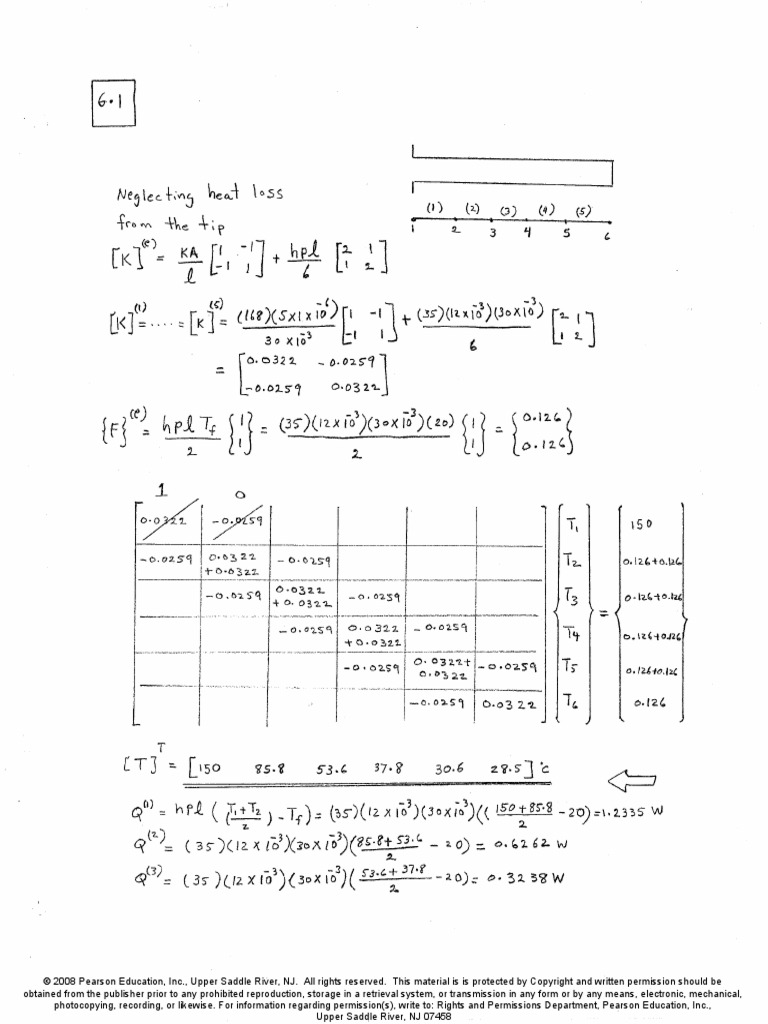 6.1
Neglecting heat loss
from the tip
(1) (2) (3) (4) (5)
1 2 3 4 5 6
[K]^(e) = KA/l [1 -1; -1 1] + hpl/6 [2 1; 1 2]
[K]^(1) = ···· = [K]^(5) = (168)(5x1x10^-6)/30x10^-3 [1 -1; -1 1] + (35)(12x10^-3)(30x10^-3)/6 [2 1; 1 2]
= [0.0322 -0.0259; -0.0259 0.0322]
{F}^(e) = hpl Tf/2 {1; 1} = (35)(12x10^-3)(30x10^-3)(20)/2 {1; 1} = {0.126; 0.126}
1 0
0.0322 -0.0259 T1 150
-0.0259 0.0322+0.0322 -0.0259 T2 0.126+0.126
-0.0259 0.0322+0.0322 -0.0259 T3 = 0.126+0.126
-0.0259 0.0322+0.0322 -0.0259 T4 0.126+0.126
-0.0259 0.0322+0.0322 -0.0259 T5 0.126+0.126
-0.0259 0.0322 T6 0.126
[T]^T = [150 85.8 53.6 37.8 30.6 28.5] °C
Q^(1) = hpl ((T1+T2)/2 - Tf) = (35)(12x10^-3)(30x10^-3)((150+85.8)/2 - 20) = 1.2335 W
Q^(2) = (35)(12x10^-3)(30x10^-3)((85.8+53.6)/2 - 20) = 0.6262 W
Q^(3) = (35)(12x10^-3)(30x10^-3)((53.6+37.8)/2 - 20) = 0.3238 W
© 2008 Pearson Education, Inc., Upper Saddle River, NJ. All rights reserved. This material is is protected by Copyright and written permission should be
obtained from the publisher prior to any prohibited reproduction, storage in a retrieval system, or transmission in any form or by any means, electronic, mechanical,
photocopying, recording, or likewise. For information regarding permission(s), write to: Rights and Permissions Department, Pearson Education, Inc.,
Upper Saddle River, NJ 07458